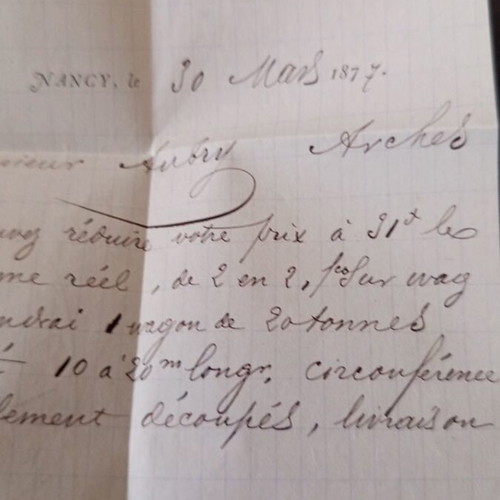 NANCY, le 30 Mars 1877.
sieur Aubry Arches
réduire votre prix à 31f le
me réel, de 2 en 2, fco Sur wag
ndrai 1 wagon de 20 tonnes
10 à 20m longr, circonférence
lement découpés, livraison